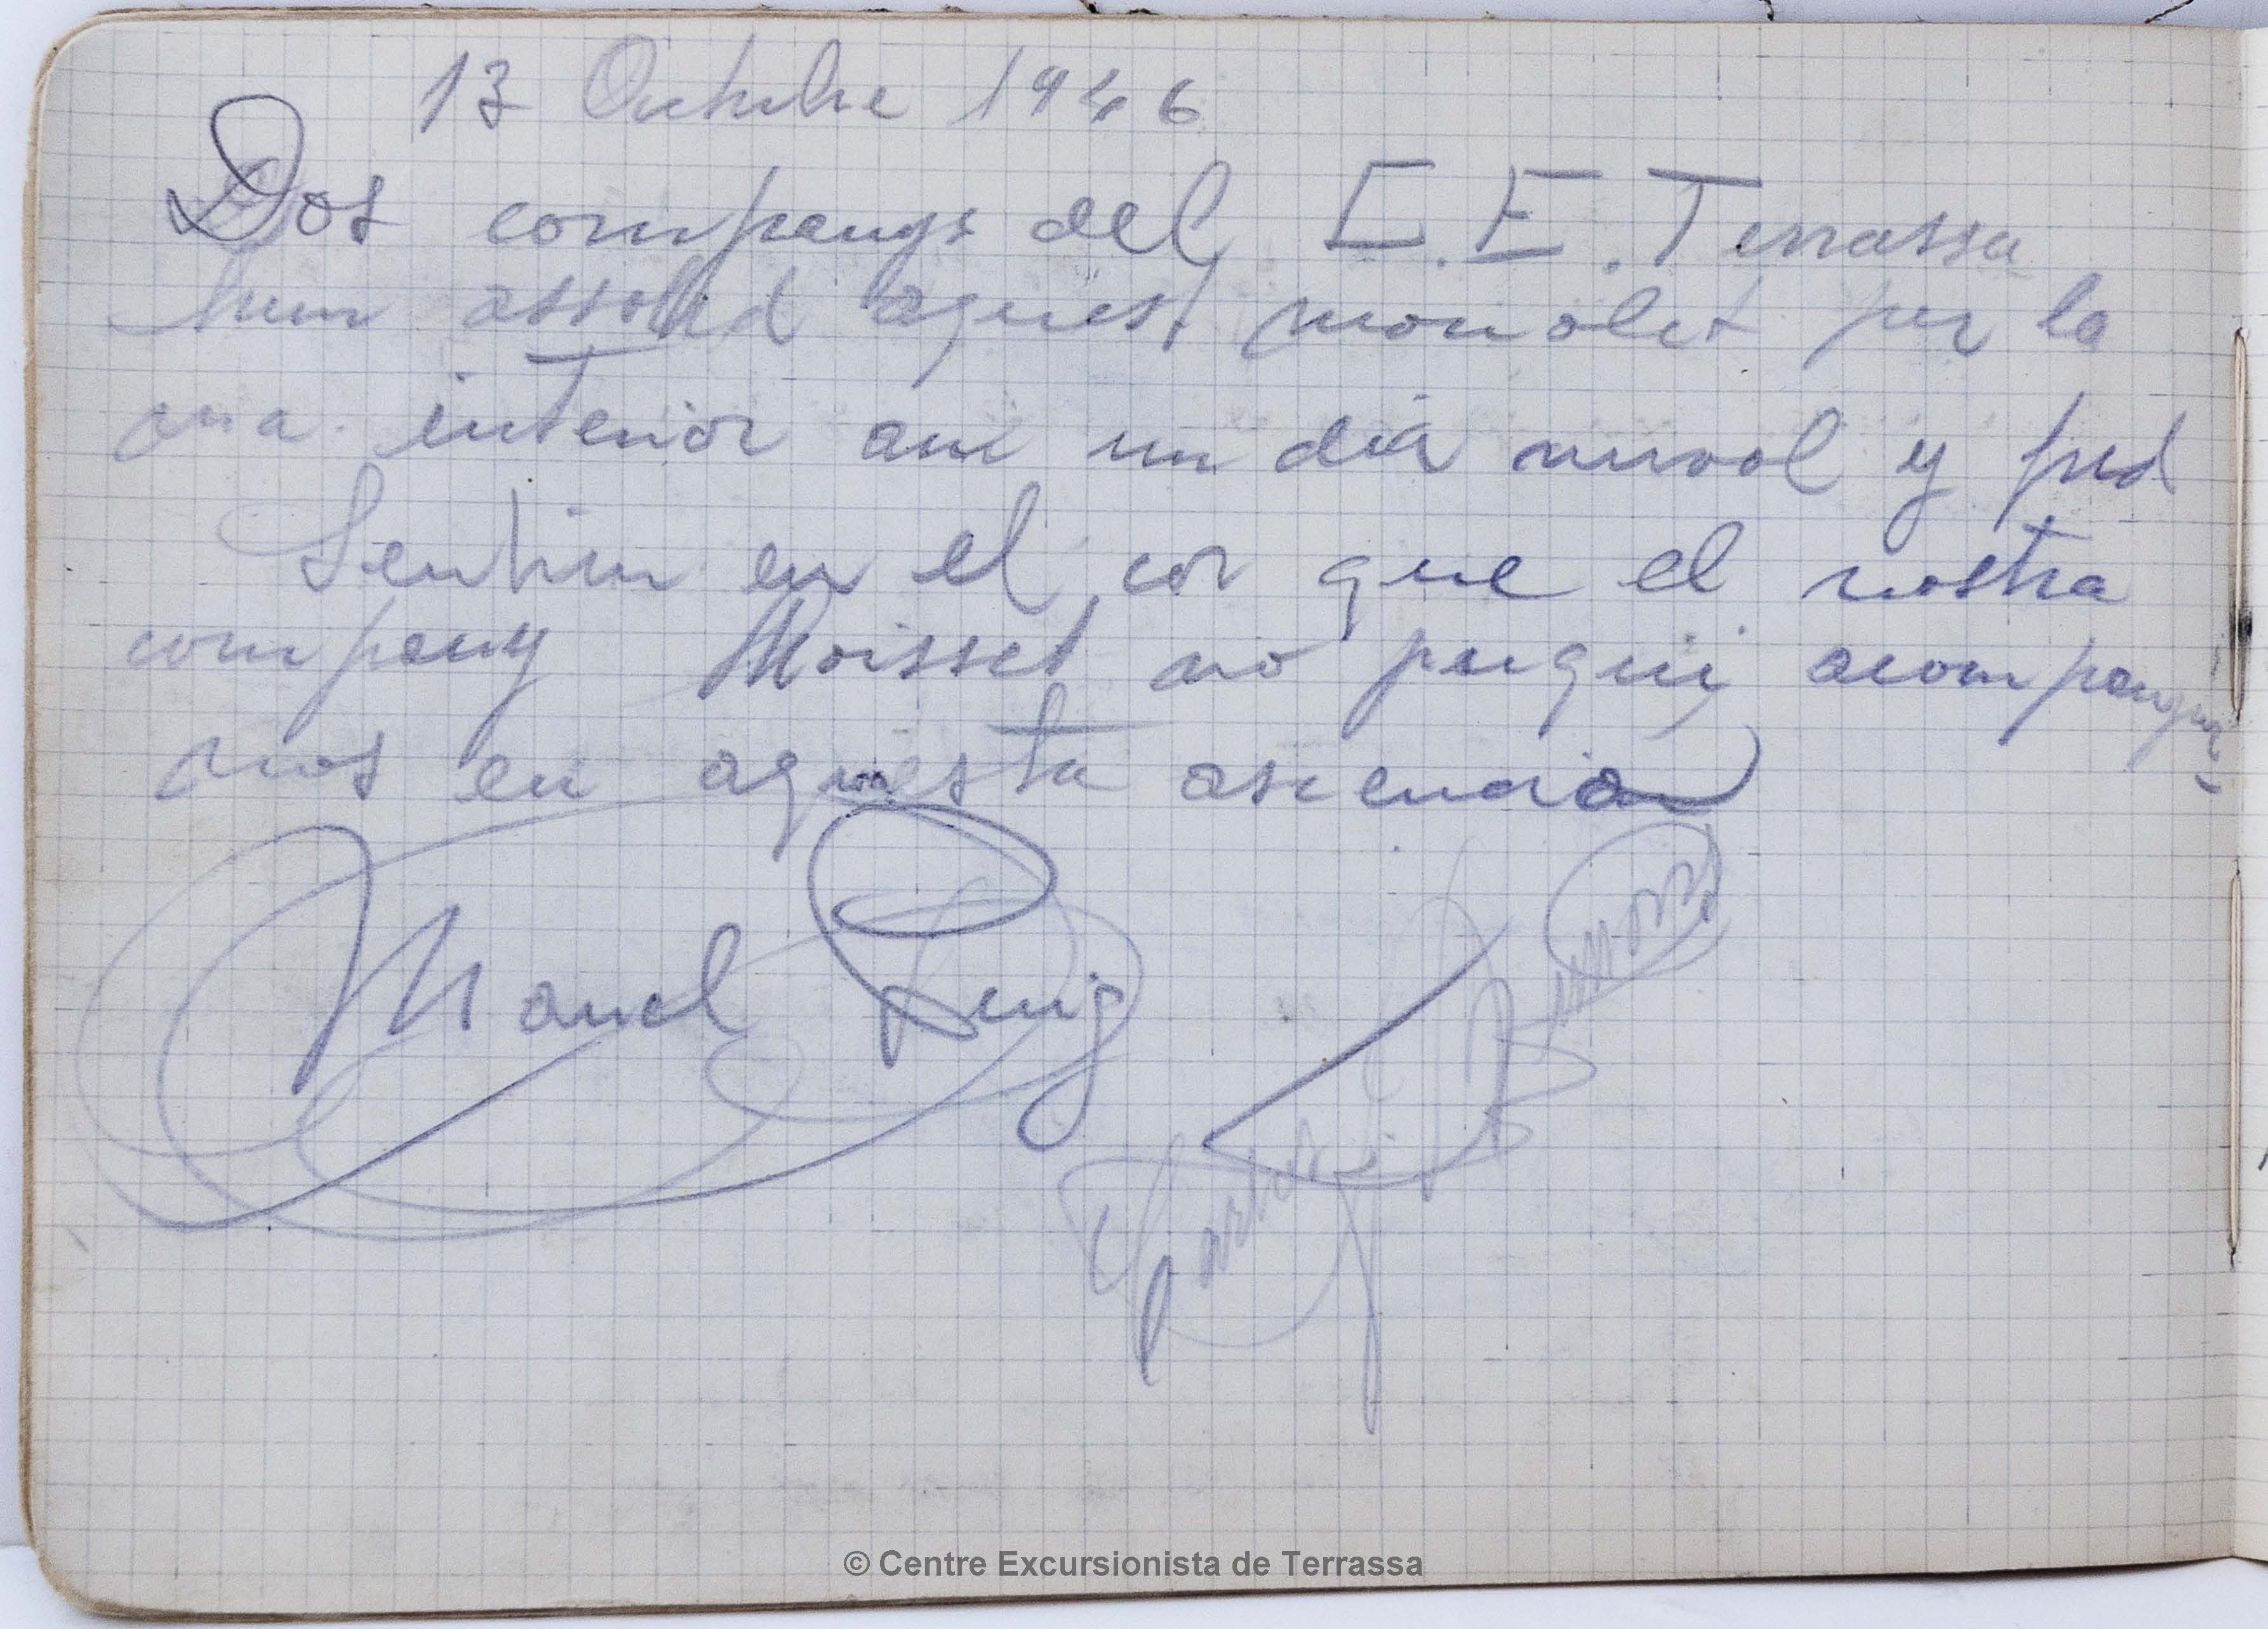 13 Octubre 1946
Dos companys del C.E.Terrassa
hem assolid aquest monolit per la
ara interior am un dia nuvol y fred
Sentim en el cor que el nostra
company Moisset no pugui acompanyar-
nos en aquesta ascenció
Manel Puig
© Centre Excursionista de Terrassa